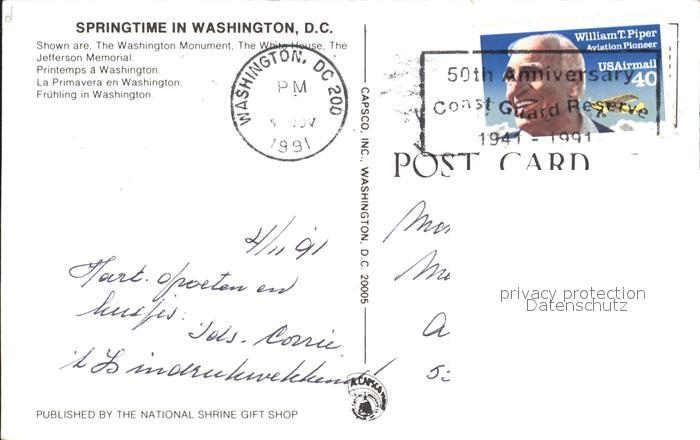 SPRINGTIME IN WASHINGTON, D.C.
Shown are, The Washington Monument, The White House, The
Jefferson Memorial.
Printemps á Washington.
La Primavera en Washington.
Frühling in Washington.
WASHINGTON, DC 200
PM
NOV
1991
William T. Piper
Aviation Pioneer
USAirmail
40
50th Anniversary
Coast Guard Reserve
1941 - 1991
POST CARD
CAPSCO, INC., WASHINGTON, D.C. 20005
4/11 '91
Hart. groeten en
kusjes.
Ids. Corrie.
't Is indrukwekkend!
privacy protection
Datenschutz
A CAPSCO
PUBLISHED BY THE NATIONAL SHRINE GIFT SHOP
d